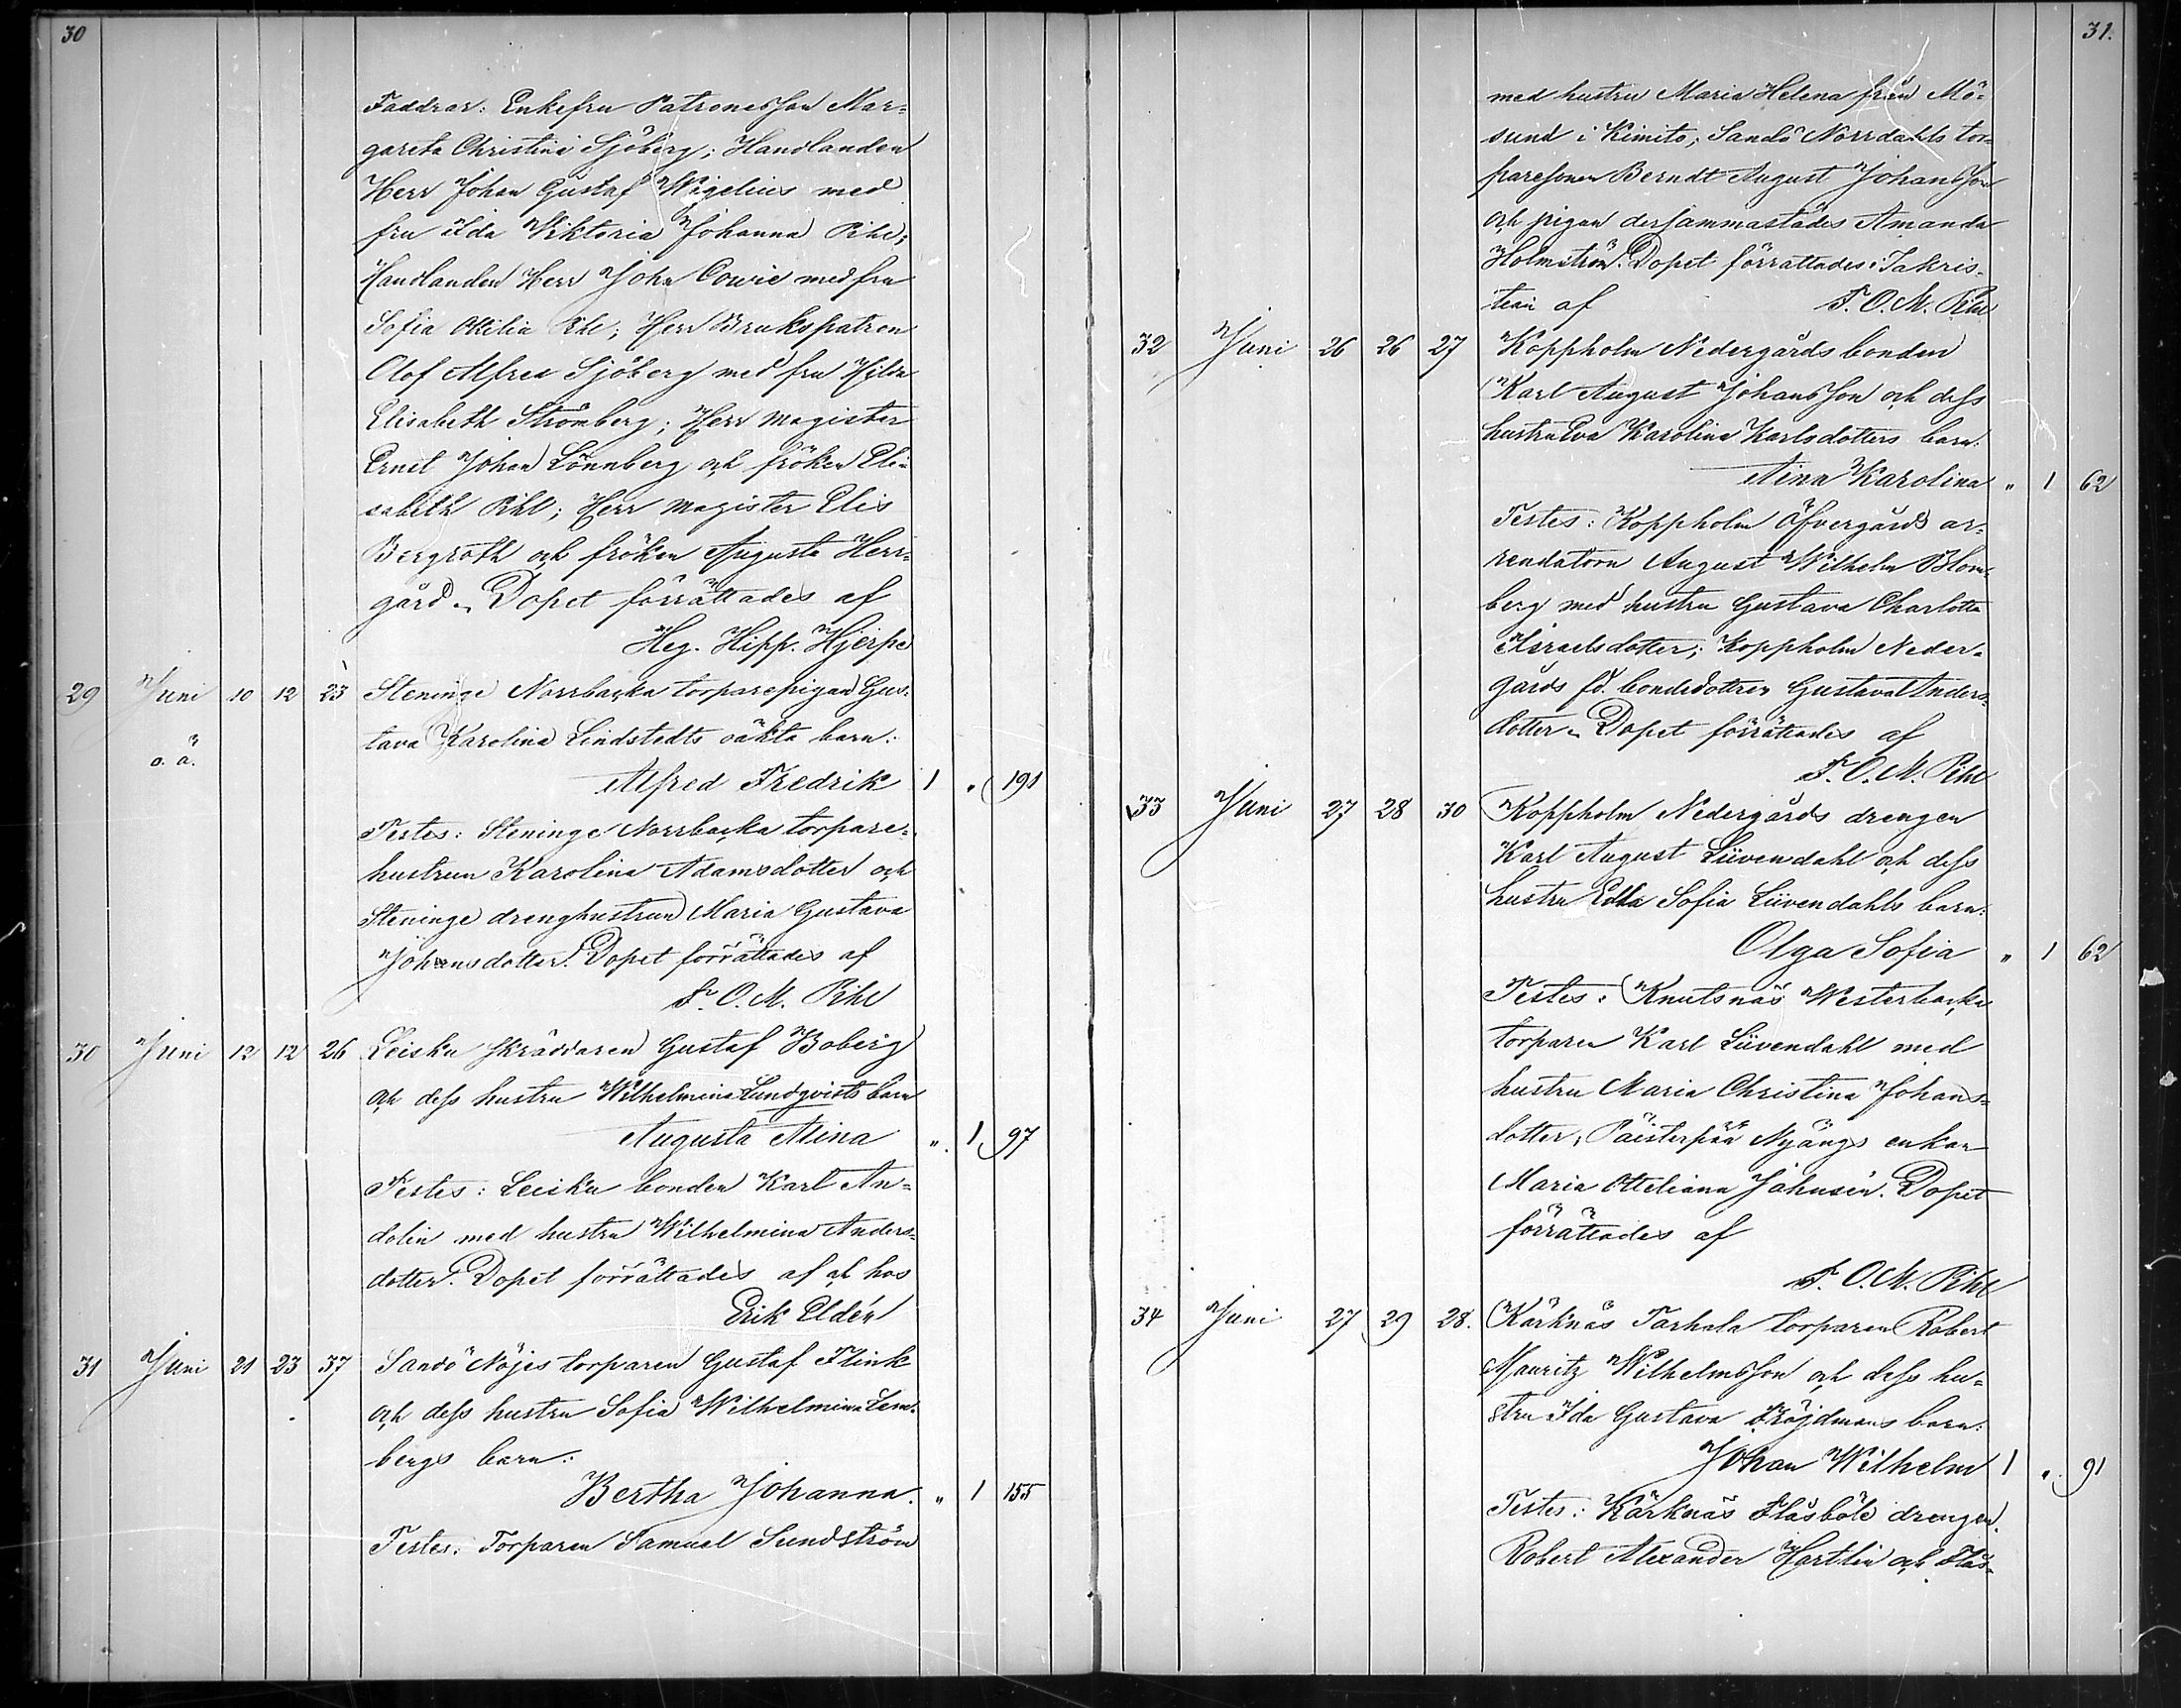 30
Faddrar: Enkefru Patronessan Mar=
gareta Christina Sjöberg; Handlanden
Herr Johan Gustaf Wigelius med
fru Ida Viktoria Johanna Pihl;
Handlanden Herr John Cowie med fru
Sofia Otilia Pihl; Herr Brukspatron
Olof Alfred Sjöberg med fru Hilda
Elisabeth Strömberg; Herr Magister
Ernst Johan Lönnberg och fröken Eli=
sabeth Pihl; Herr Magister Elis
Bergroth och fröken Augusta Herr=
gård. Dopet förrättades af
Heg. Hipp. Hjerpe
29 Juni 10 12 23 Steninge Norrbacka torparepigan Gus=
tava Karolina Lindstedts oäkta barn:
o. ä.
Alfred Fredrik 1 " 191
Testes: Steninge Norrbacka torpare=
hustrun Karolina Adamsdotter och
Steninge drenghustrun Maria Gustava
Johansdotter. Dopet förrättades af
F. O. M. Pihl
30 Juni 12 12 26 Leisku skräddaren Gustaf Boberg
och dess hustru Wilhelmina Lundqvists barn
Augusta Alina " 1 97
Testes: Leisku bonden Karl An=
dolin med hustru Wilhelmina Anders=
dotter. Dopet förrättades af och hos
Erik Eldén
31 Juni 21 23 37 Sandö Nöjes torparen Gustaf Flink
och dess hustru Sofia Wilhelmina Lem=
bergs barn:
Bertha Johanna. " 1 155
Testes: Torparen Samuel Sundström
31.
med hustru Maria Helena från Mö=
sund i Kimito; Sandö Norrdahls tor=
paresonen Berndt August Johansson
och pigan dersammastädes Amanda
Holmström. Dopet förrättades i Sakris=
tian af F. O. M. Pihl
32 Juni 26 26 27 Koppholm Nedergårds bonden
Karl August Johansson och dess
hustru Eva Karolina Karlsdotters barn:
Aina Karolina " 1 62
Testes: Koppholm Öfvergårds ar=
rendatorn August Wilhelm Blom=
berg med hustru Gustava Charlotta
Israelsdotter; Koppholm Neder=
gårds fd. bondedottren Gustava Anders=
dotter. Dopet förrättades af
F. O. M. Pihl
33 Juni 27 28 30 Koppholm Nedergårds drengen
Karl August Lüvendahl och dess
hustru Edla Sofia Lüvendahls barn:
Olga Sofia " 1 62
Testes: Knutsnäs Westerbacka
torparen Karl Lüvendahl med
hustru Maria Christina Johans=
dotter; Päisterpää Nyängs enkan
Maria Otteliana Johnsén. Dopet
förrättades af
F. O. M. Pihl
34 Juni 27 29 28. Kärknäs Tarhala torparen Robert
Mauritz Wilhelmsson och dess hu=
stru Ida Gustava Fröjdmans barn:
Johan Wilhelm 1 " 91
Testes: Kärknäs Flåsböle drengen
Robert Alexander Hartlin och Flås=